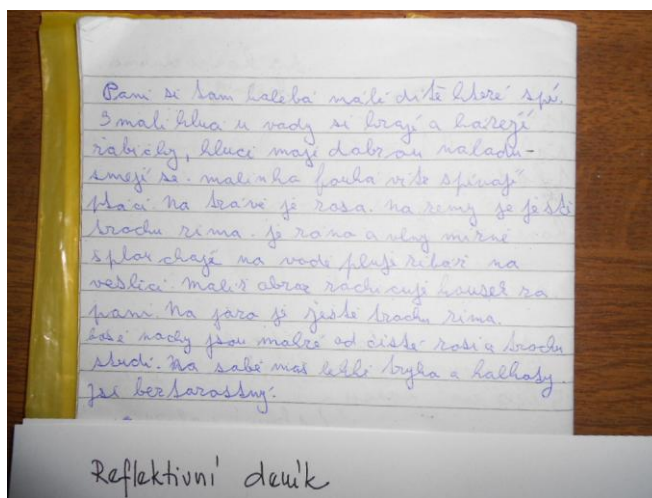 Pani si tam kolebá máli dítě které spí.
3 mali kluci u vody si hrají a házejí
žabičky, kluci maji dobrou naladu -
smějí se. malinko fouka vítr spívají
ptáci. Na trávě je rosa. na zemy je ještě
trochu zima. je ráno a vlny mírné
šplouchají na vodě plují ribáři na
veslici. malíř obraz zachicují kousek za
pani. Na jaro je ještě trochu zima.
bosé nohy jsou mokré od čisté rosi a trochu
studí. Na sobě máš lehké tryko a kalhoty.
jsi bezstarostný.
Reflektivní deník